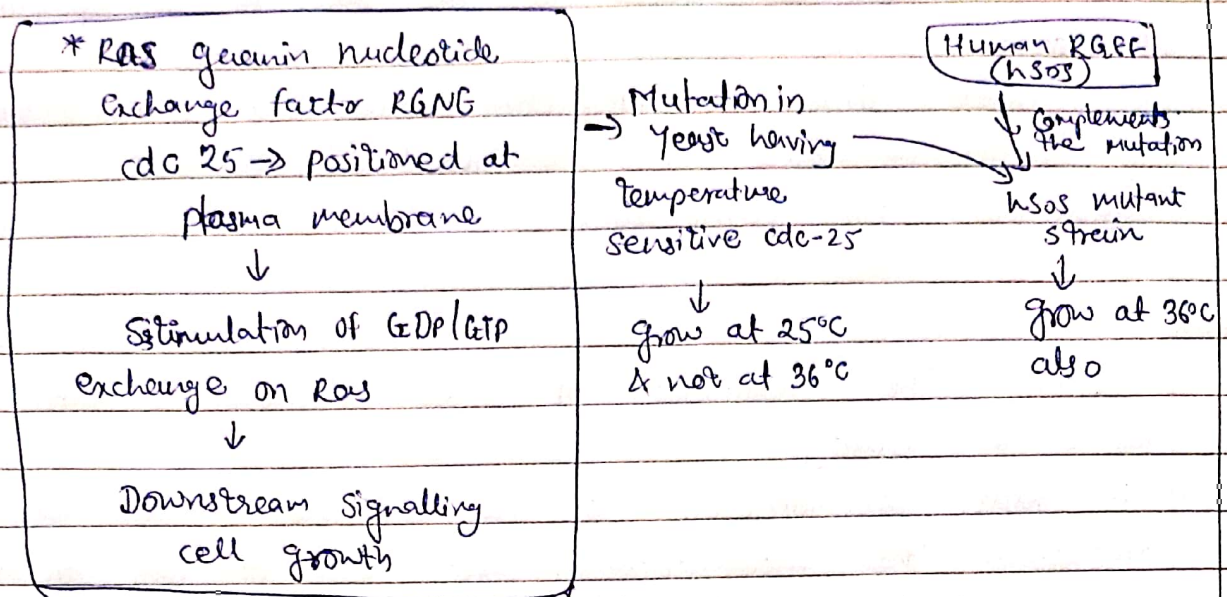 * Ras guanin nucleotide
exchange factor RGNG
cdc 25 → positioned at
plasma membrane
↓
Sstimulation of GDP/GTP
exchange on Ras
↓
Downstream signalling
cell growth
→ Mutation in
yeast having
temperature
sensitive cdc-25
↓
grow at 25°C
& not at 36°C
Human RGEF
(hSOS)
↓ Complements
the mutation
hsos mutant
strain
↓
grow at 36°C
also